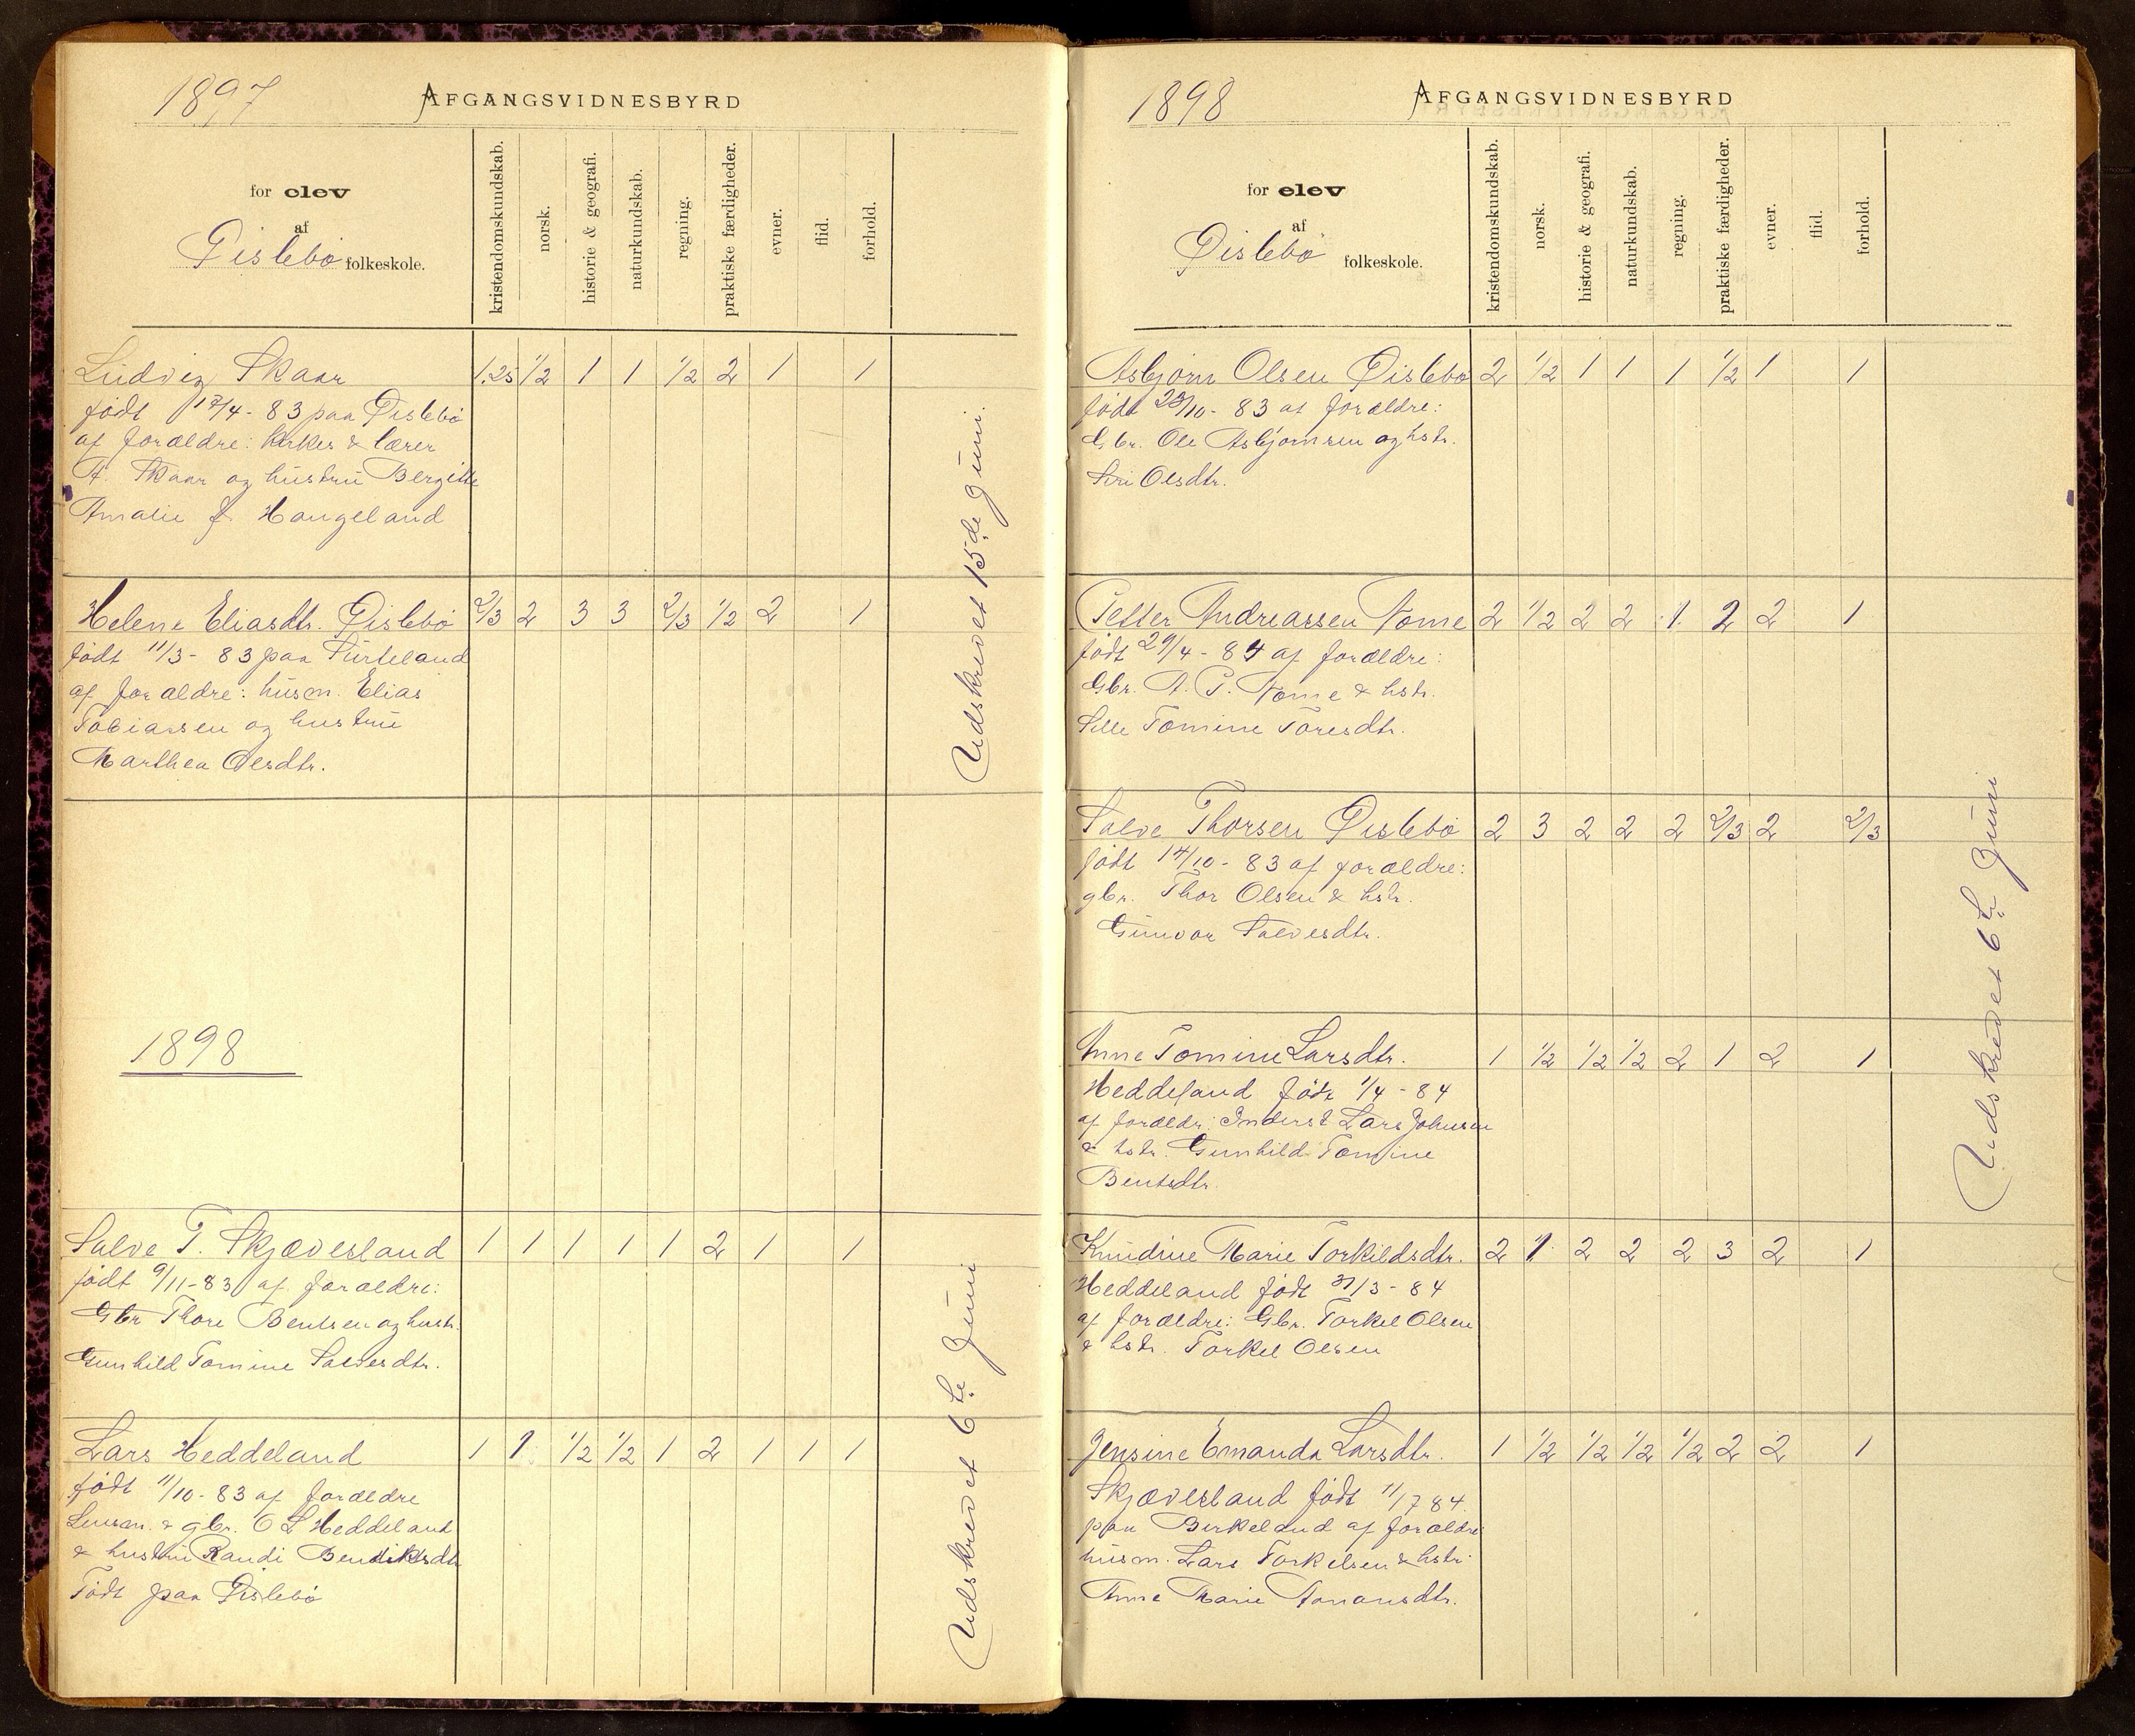 1897 AFGANGSVIDNESBYRD
for elev
af
Øislebø folkeskole.
kristendomskundskab.
norsk.
historie & geografi.
naturkundskab.
regning.
praktiske færdigheder.
evner.
flid.
forhold.
Ludvig Skaar 1.25 1/2 1 1 1/2 2 1 1
født 17/4 - 83 paa Øislebø
af forældre: kirkes & lærer
A. Skaar og hustru Bergitte
Amalie f. Haugeland
Helene Eliasdtr. Øislebø 2/3 2 3 3 2/3 1/2 2 1
født 11/3 - 83 paa
af forældre: husm. Elias
Tobiassen og hustru
Marthea Olesdtr.
Udskrevet 15de Juni.
1898
Salve T. Skjævesland 1 1 1 1 1 2 1 1
født 9/11-83 af forældre:
Gbr Thore Bentsen og hustr.
Gunhild Tomine Salvesdtr.
Lars Heddeland 1 1. 1/2 1/2 1 2 1 1 1
født 11/10 - 83 af forældre
Lensm. & gbr. O L Heddeland
& hustru Randi Bendiksdtr
Født paa Øislebø
Udskrevet 6te Juni
1898 AFGANGSVIDNESBYRD
for elev
af
Øislebø folkeskole.
kristendomskundskab.
norsk.
historie & geografi.
naturkundskab.
regning.
praktiske færdigheder.
evner.
flid.
forhold.
Asbjørn Olsen Øislebø 2 1/2 1 1 1 1/2 1 1
født 23/10 - 83 af forældre:
Gbr. Ole Asbjørnsen og hstr.
Siri Olsdtr.
Petter Andreassen Nome 2 1/2 2 2 1. 2 2 1
født 29/4 - 84 af forældre:
Gbr. A. P. Nome & hstr.
Sille Tomine Toresdtr.
Salve Thorsen Øislebø 2 3 2 2 2 2/3 2 2/3
født 14/10 - 83 af forældre:
gbr. Thor Olsen & hstr.
Gunvor Salvesdtr.
Anne Tomine Larsdtr. 1 1/2 1/2 1/2 2 1 2 1
Heddeland født 1/4 - 84
af forældr: Inderst Lars Johnsen
& hstr. Gunhild Tomine
Bentsdtr.
Knudine Marie Torkildsdtr. 2 1 2 2 2 3 2 1
Heddeland født 31/3 - 84
af forældre: Gbr. Torkel Olsen
& hstr. Torkel Olsen
Jensine Emanda Larsdtr. 1 1/2 1/2 1/2 1/2 2 2 1
Skjævesland født 11/7 84.
paa Birkeland af forældre
husm. Lars Torkelsen & hstr.
Anne Marie Aanonsdtr.
Udskrevet 6te Juni